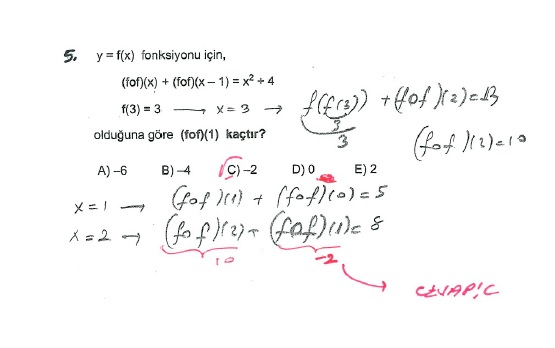 5. y = f(x) fonksiyonu için,
(fof)(x) + (fof)(x – 1) = x² + 4
f(3) = 3 → x = 3 → f(f(3)) + (fof)(2) = 13
3
3
olduğuna göre (fof)(1) kaçtır?
(fof)(2) = 10
A) –6 B) –4 C) –2 D) 0 E) 2
x = 1 → (fof)(1) + (fof)(0) = 5
x = 2 → (fof)(2) + (fof)(1) = 8
10 -2
CEVAP: C